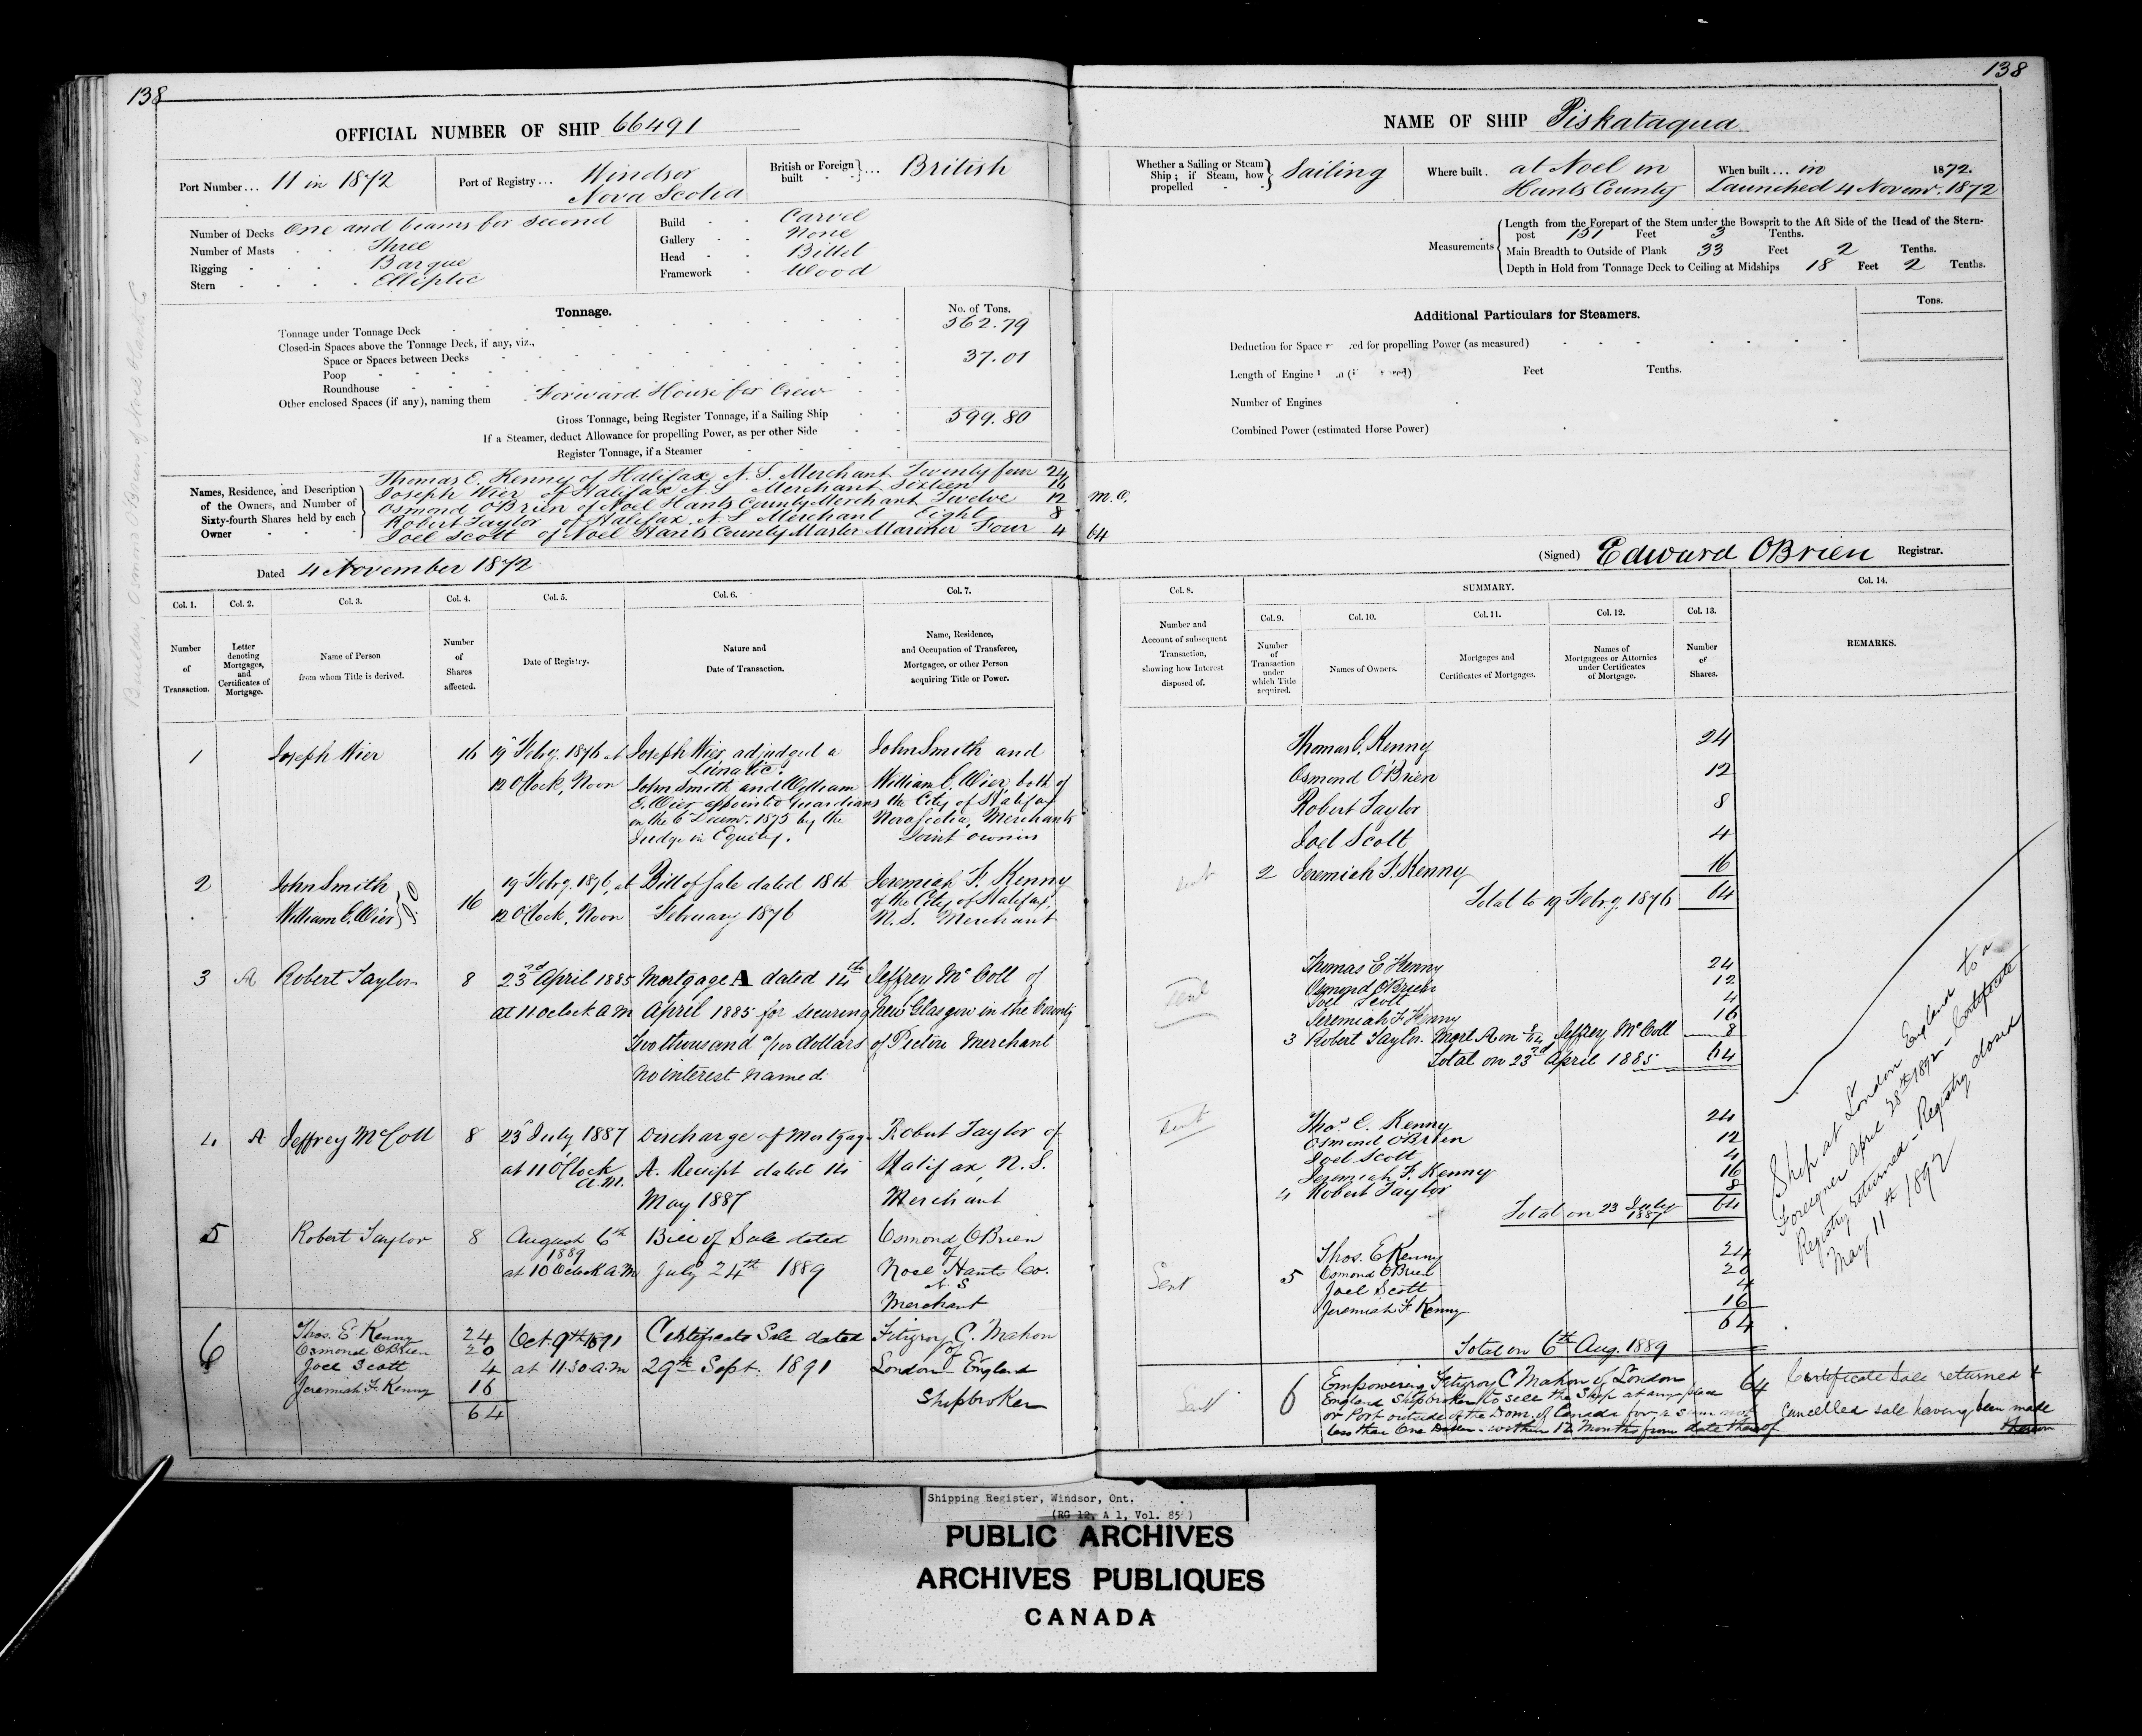 138
OFFICIAL NUMBER OF SHIP 66491
Port Number... 11 in 1872
Port of Registry... Windsor
Nova Scotia
British or Foreign built ... British
Number of Decks One and beams for second
Number of Masts Three
Rigging Barque
Stern Elliptic
Build Carvel
Gallery None
Head Billet
Framework Wood
Tonnage.
No. of Tons.
Tonnage under Tonnage Deck 562.79
Closed-in Spaces above the Tonnage Deck, if any, viz.,
Space or Spaces between Decks 37.01
Poop
Roundhouse
Other enclosed Spaces (if any), naming them Forward House for Crew
Gross Tonnage, being Register Tonnage, if a Sailing Ship 599.80
If a Steamer, deduct Allowance for propelling Power, as per other Side
Register Tonnage, if a Steamer
Names, Residence, and Description of the Owners, and Number of Sixty-fourth Shares held by each Owner
Thomas E. Kenny of Halifax N.S. Merchant Twenty four 24
Joseph Wier of Halifax N.S. Merchant Sixteen 16
Osmond O'Brien of Noel Hants County Merchant Twelve 12
Robert Taylor of Halifax N.S. Merchant Eight 8
Joel Scott of Noel Hants County Master Mariner Four 4 64
Dated 4 November 1872
Builder, Osmond O'Brien of Noel Hants C
Col. 1. Col. 2. Col. 3. Col. 4. Col. 5. Col. 6. Col. 7.
Number of Transaction.
Letter denoting Mortgages, and Certificates of Mortgage.
Name of Person from whom Title is derived.
Number of Shares affected.
Date of Registry.
Nature and Date of Transaction.
Name, Residence, and Occupation of Transferee, Mortgagee, or other Person acquiring Title or Power.
1 Joseph Wier 16 19 Febry. 1876 at Joseph Wier, adjudged a John Smith and
Lunatic.
12 O'Clock, Noon John Smith and William William E. Wier, both of
E. Wier appointed Guardians the City of Halifax
on the 6 Decemr. 1875 by the Nova Scotia, Merchants
Judge in Equity. Joint owners
2 John Smith 16 19 Febry. 1876, at Bill of Sale dated 18th Jeremiah F. Kenny
William E. Wier J.O 12 O'Clock, Noon February 1876 of the City of Halifax,
N.S. Merchant
3 A Robert Taylor 8 23rd April 1885 Mortgage A dated 14th Jeffrey McColl of
at 11 oclock a m April 1885 for securing New Glasgow in the County
Two thousand dollars of Pictou Merchant
no interest named
4 A Jeffrey McColl 8 23 July 1887 Discharge of Mortgage Robert Taylor of
at 11 O'Clock a.m. A. Receipt dated 14 Halifax, N.S.
May 1887 Merchant
5 Robert Taylor 8 August 6th 1889 Bill of Sale dated Osmond O'Brien
of
at 10 Oclock A.M July 24th 1889 Noel Hants Co.
N.S
Merchant
6 Thos. E Kenny 24 Oct. 9th 1891 Certificate Sale dated Fitzroy C. Mahon
Osmond O'Brien 20 of
Joel Scott 4 at 11.30 A.M 29th Sept. 1891 London England
Jeremiah F. Kenny 16 Shipbroker
64
138
NAME OF SHIP Piskataqua
Whether a Sailing or Steam Ship; if Steam, how propelled Sailing
Where built. at Noel in
Hants County
When built... in 1872.
Launched 4 Novemr. 1872
Measurements
Length from the Forepart of the Stem under the Bowsprit to the Aft Side of the Head of the Stern-
post 151 Feet 3 Tenths.
Main Breadth to Outside of Plank 33 Feet 2 Tenths.
Depth in Hold from Tonnage Deck to Ceiling at Midships 18 Feet 2 Tenths.
Additional Particulars for Steamers.
Tons.
Deduction for Space ed for propelling Power (as measured)
Length of Engine Feet Tenths.
Number of Engines
Combined Power (estimated Horse Power)
M.O.
(Signed) Edward O'Brien Registrar.
Col. 8. SUMMARY. Col. 14.
Col. 9. Col. 10. Col. 11. Col. 12. Col. 13.
Number and Account of subsequent Transaction, showing how Interest disposed of.
Number of Transaction under which Title acquired.
Names of Owners.
Mortgages and Certificates of Mortgages.
Names of Mortgagees or Attornies under Certificates of Mortgage.
Number of Shares.
REMARKS.
Thomas E. Kenny 24
Osmond O'Brien 12
Robert Taylor 8
Joel Scott 4
Sent 2 Jeremiah F. Kenny 16
Total to 19 Febry. 1876 64
Thomas E Kenny 24
Osmond O'Brien 12
Sent Joel Scott 4
Jeremiah F Kenny 16
3 Robert Taylor. Mort A on 8/64 Jeffrey McColl 8
Total on 23rd April 1885 64
Sent Thos. E. Kenny 24
Osmond O'Brien 12
Joel Scott 4
Jeremiah F. Kenny 16
4 Robert Taylor 8
Total on 23 July 1887 64
Thos. E Kenny 24
Sent 5 Osmond O'Brien 20
Joel Scott 4
Jeremiah F. Kenny 16
64
Total on 6th Aug. 1889
Sent 6 Empowering Fitzroy C Mahon of London 64
England Shipbroker to sell the Ship at any place
or Port outside of the Dom. of Canada for a sum not
less than One Dollar - within 12 Months from date thereof
Certificate Sale returned &
cancelled sale having been made
thereon
Ship at London England to a
Foreigner April 28th 1892 - Certificate
Registry returned - Registry closed
May 11th 1892
Shipping Register, Windsor, Ont.
(RG 12, A 1, Vol. 85)
PUBLIC ARCHIVES
ARCHIVES PUBLIQUES
CANADA